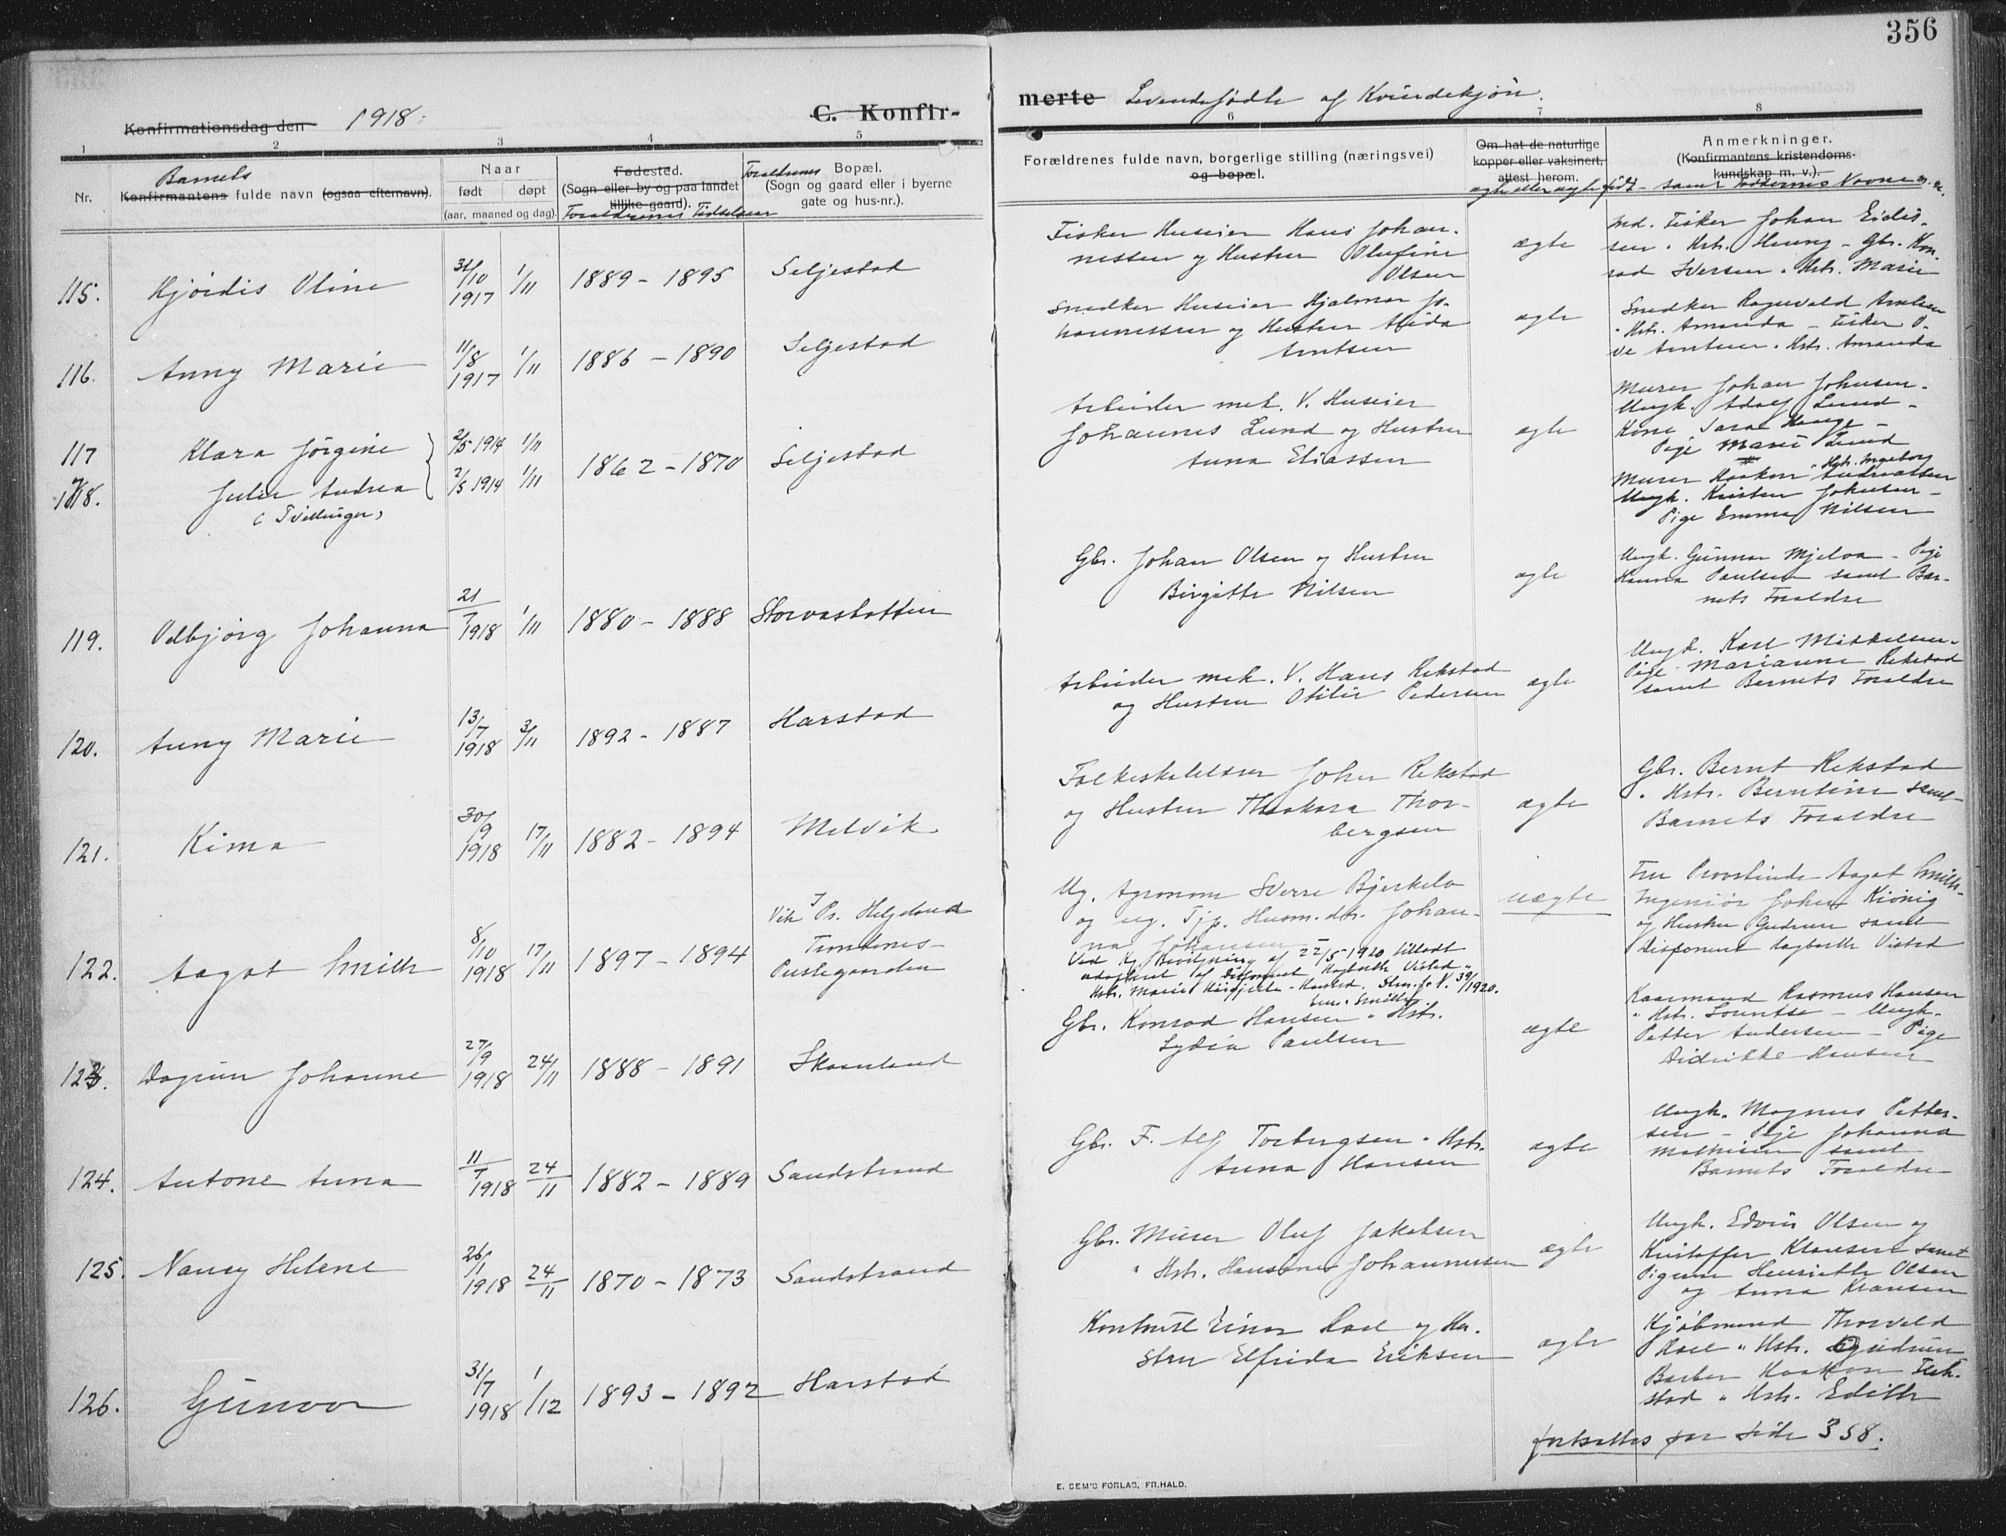 356
Konfirmationsdag den 1918.
C. Konfir-
merte Levendefødte af Kvindekjøn.
1 2 3 4 5 6 7 8
Nr.
Barnets
Konfirmantens fulde navn (ogsaa efternavn).
Naar
født døpt
(aar, maaned og dag)
Fødested.
(Sogn eller by og paa landet
tillike gaard).
Forældrenes Fødselsaar
Forældrenes Bopæl.
(Sogn og gaard eller i byerne
gate og hus-nr.).
Forældrenes fulde navn, borgerlige stilling (næringsvei)
og bopæl.
Om hat de naturlige
kopper eller vaksinert,
attest herom.
ægte eller uægte født
Anmerkninger.
(Konfirmantens kristendoms-
kundskap m. v.).
samt Faddernes Navne m. v.
115. Hjördis Oline 31/10 1917 1/11 1889 - 1895 Seljestad
Fisker Huseier Hans Johan-
nessen og Hustru Olufine
Olsen
ægte
Md. Fisker Johan Eidis-
sen " Hstr. Henny - Gbr. Kon-
rad Iversen " Hstr. Marie
116. Anny Marie 11/8 1917 1/11 1886 - 1890 Seljestad
Snedker Huseier Hjalmar Jo-
hannessen og Hustru Alida
Arntsen
ægte
Snedker Ragnvald Arntsen
" Hstr. Amanda - Fisker O-
ve Arntsen " Hstr. Amanda
117 Klara Jørgine 2/5 1914 1/11
118. Julie Andrea 2/5 1914 1/11
(Tvillinger)
1862 - 1870 Seljestad
Arbeider mek. V. Huseier
Johannes Lund og Hustru
Anna Eliassen
ægte
Murer Johan Johnsen -
Ungk. Adolf Lund -
Kone Sara Hauge -
Pige Marie Lund
Murer Haakon " Hstr. Ingeborg Andreassen
Ungk. Kristen Johnsen -
Pige Emma Nilsen
119. Odbjørg Johanna 21/7 1918 1/11 1880 - 1888 Storvasbotten
Gbr. Johan Olsen og Hustru
Birgitte Nilsen
ægte
Ungk. Gunnar Mjelva - Pige
Hanna Paulsen samt Bar-
nets Forældre
120. Anny Marie 13/7 1918 3/11 1892 - 1887 Harstad
Arbeider mek. V. Hans Rekstad
og Hustru Otilie Pedersen
ægte
Ungk. Karl Mikkelsen -
Pige Marianne Rekstad
samt Barnets Forældre
121. Kima 30/9 1918 17/11 1882 - 1894 Melvik
Folkeskolelærer Johan Rekstad
og Hustru Theokara Thor-
bergsen
ægte
Gbr. Bernt Rekstad
" Hstr. Berntine samt
Barnets Forældre
122. Aagot Smith 8/10 1918 17/11 1897 - 1894
Vik Ps. Helgeland
Trondenes
Prestegaarden
Ug. Agronom Sverre Bjerkelo
og ug. Tjp. Husm. dtr. Johan-
na Johansen
Ved Kg. Bevilgning af 22/5-1920 tilladt
adopteret af Disponent Hagbarth Vistad "
Hstr. Marie - Harstad. 1920.
uægte
Fru Provstinde Aagot Smith
Ingeniør Johan Kiønig
og Hustru Gudrun samt
Disponent Hagbarth Vistad
123. Dagrun Johanne 27/9 1918 24/11 1888 - 1891 Skaanland
Gbr. Konrad Hansen " Hstr.
Lydia Paulsen
ægte
Kaarmand Rasmus Hansen
" Hstr. Lorentse - Ungk.
Petter Andersen - Pige
Didrikke Hansen
124. Antone Anna 11/7 1918 24/11 1882 - 1889 Sandstrand
Gbr. F. Alf Torbergsen " Hstr.
Anna Hansen
ægte
Ungk. Magnus Petter-
sen - Pige Johanna
Mathisen samt
Barnets Forældre
125. Nancy Helene 26/1 1918 24/11 1870 - 1873 Sandstrand
Gbr. Murer Oluf Jakobsen
" Hstr. Hansine Johannessen
ægte
Ungk. Edvin Olsen og
Kristoffer Klausen samt
Pigerne Henriette Olsen
og Anna Klausen
126. Gunvor 31/7 1918 1/12 1893 - 1892 Harstad
Kontorist Einar Roel og Hu-
stru Elfrida Eriksen
ægte
Kjøbmand Thorvald
Roel " Hstr. Gudrun
Barber Haakon Fisk-
stad " Hstr. Edith
fortsættes paa side 358.
E. SEM'S FORLAG, FR.HALD.